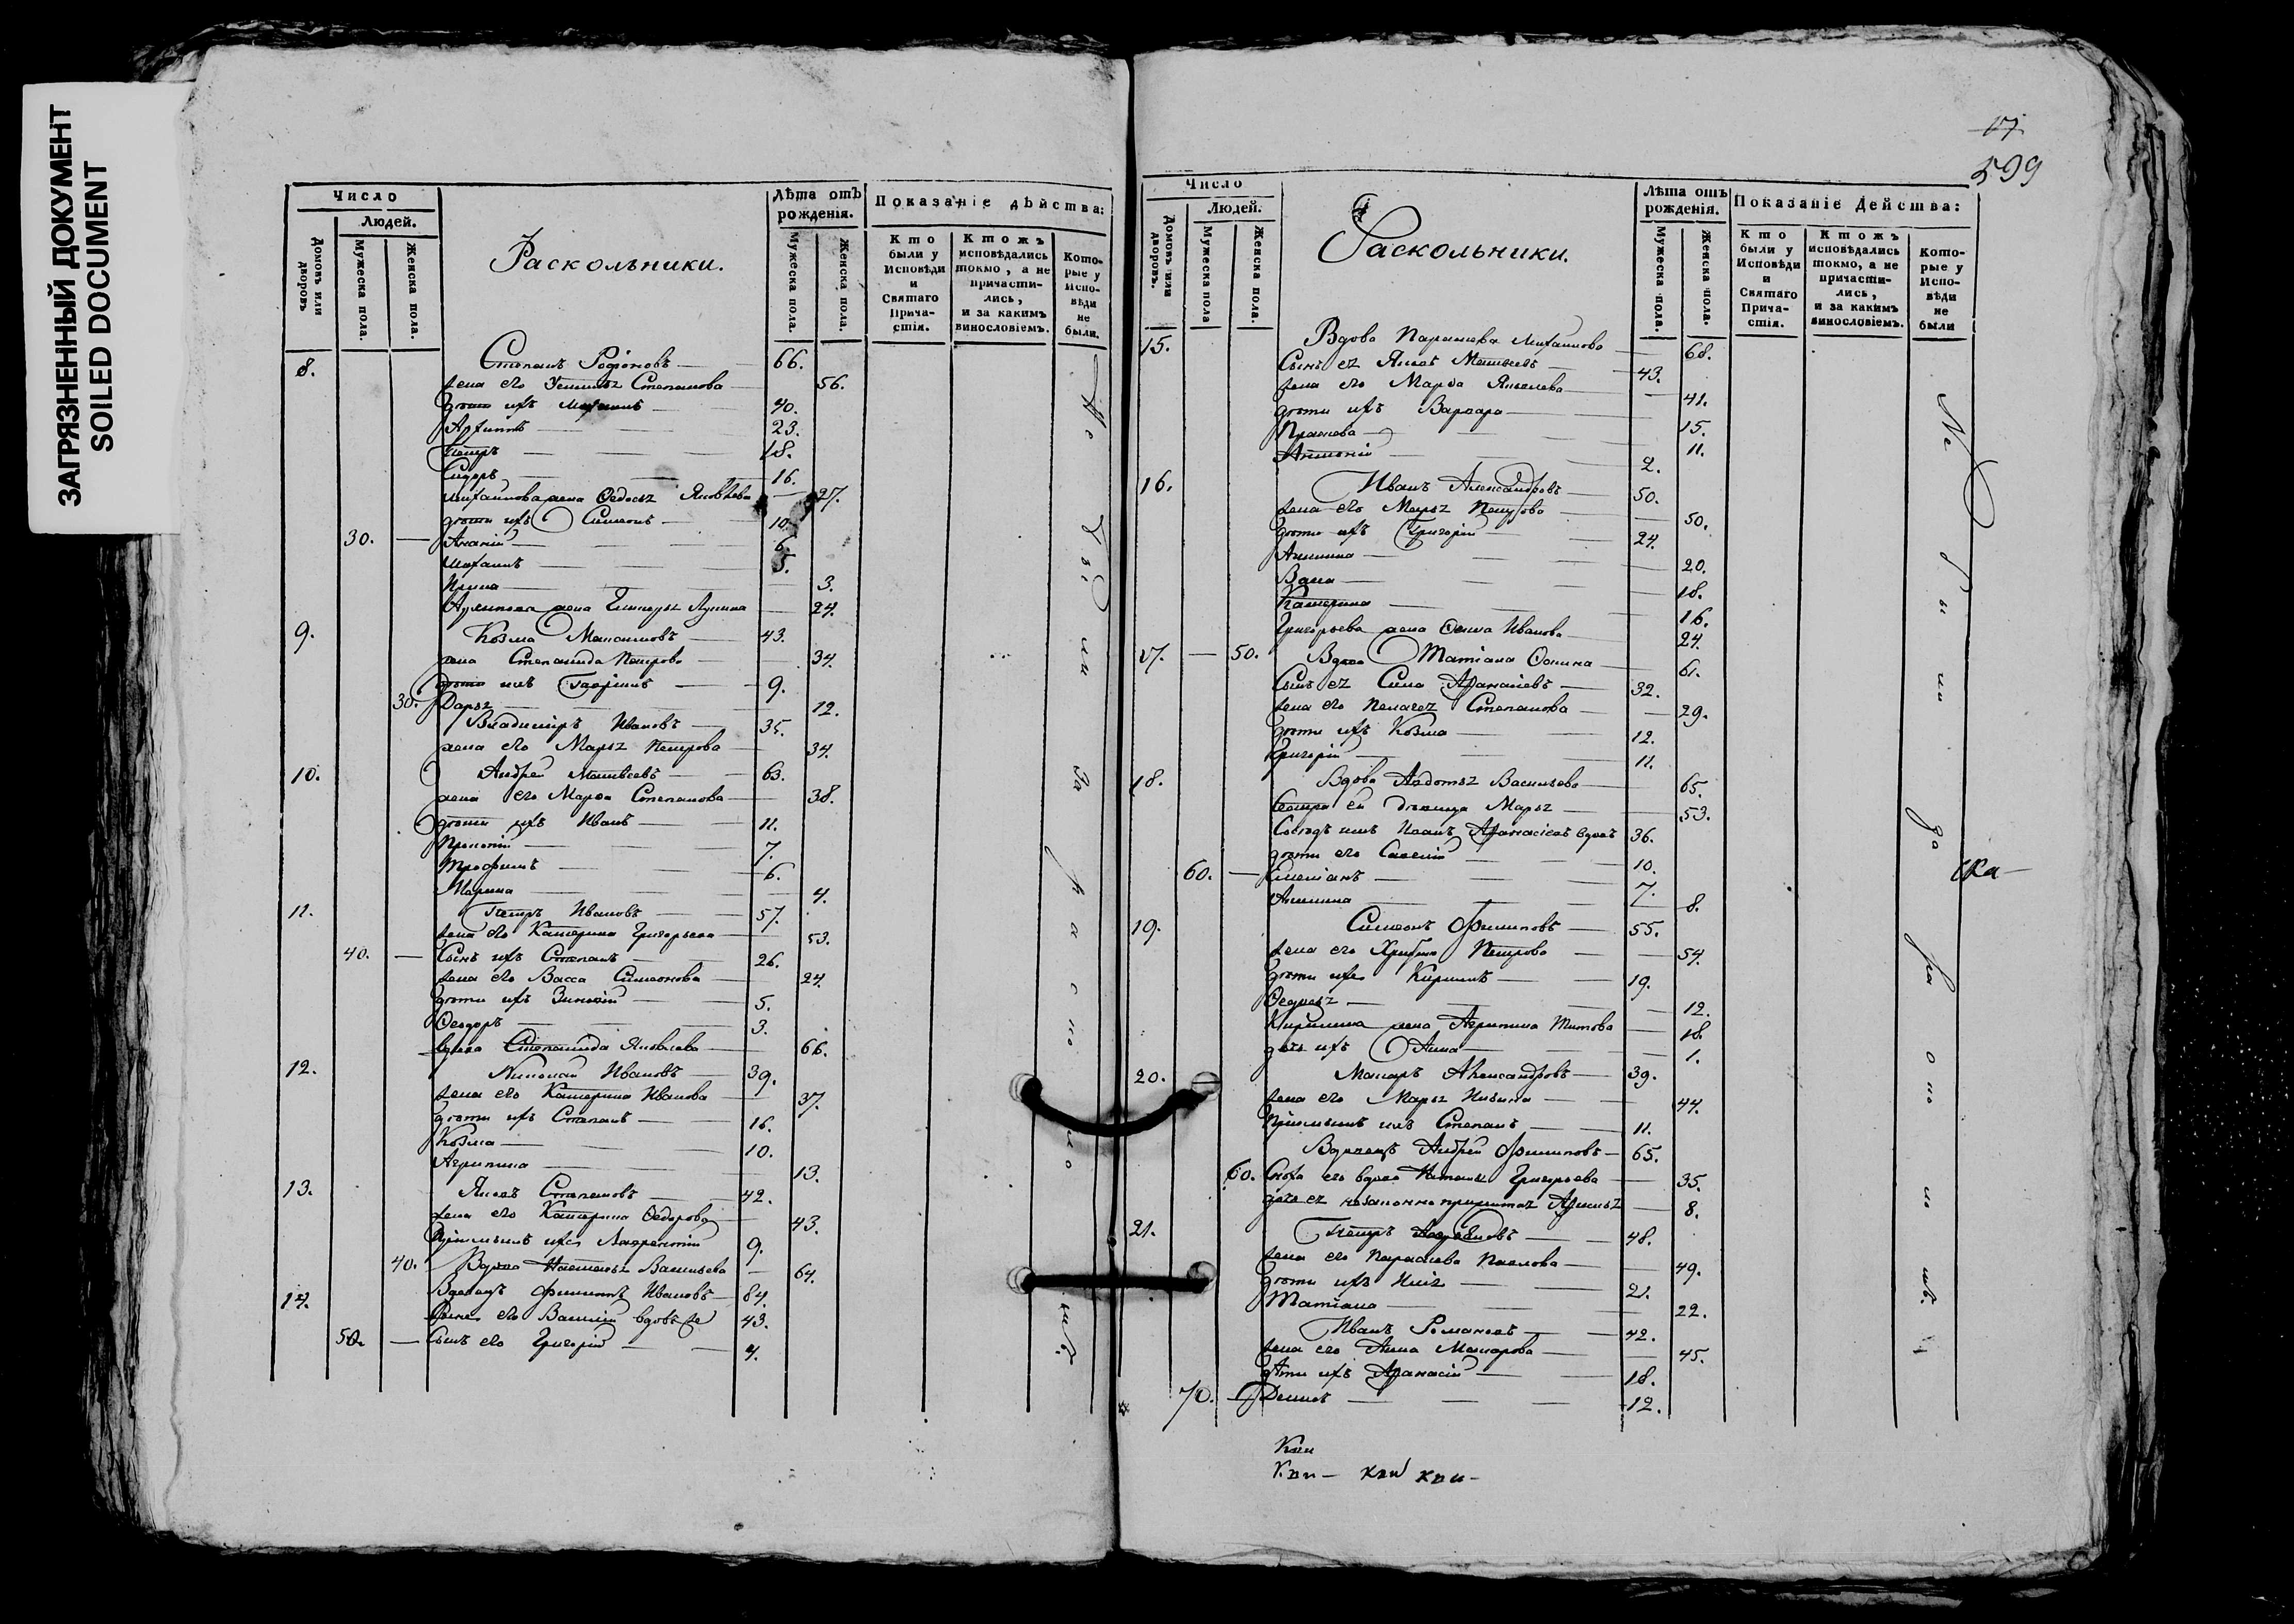 ЗАГРЯЗНЕННЫЙ ДОКУМЕНТ
SOILED DOCUMENT
Число
Людей.
Домовъ или дворовъ
Мужеска пола.
Женска пола.
Раскольники.
Лѣта отъ рожденія.
Мужеска пола.
Женска пола.
Показаніе дѣйства:
Кто были у Исповѣди и Святаго Прича-стія.
Ктожъ исповѣдались токмо, а не причасти-лись, и за какимъ винословіемъ.
Кото-рые у Испо-вѣди не были.
8. Степанъ Родіоновъ 66.
жена его Устинья Степанова 56.
дѣти ихъ 40.
Архипъ 23.
Петръ 18.
Сидоръ 16.
Михаилова жена Ѳедосья Яковлева 27.
дѣти ихъ Симеонъ 10.
30. Ананій 6.
Михаилъ 5.
Ирина 3.
Архипова жена 24.
9. Козма Максимовъ 43.
жена Степанида Петрова 34.
дѣти ихъ 9.
30. Дарья 12.
Владимиръ Ивановъ 35.
жена его Марья Петрова 34.
10. Андрей Матвѣевъ 63.
жена его Марѳа Степанова 38.
дѣти ихъ Иванъ 11.
Прокопій 7.
Трофимъ 6.
Марина 4.
11. Петръ Ивановъ 57.
жена его Катерина Григорьева 53.
40. Сынъ ихъ Степанъ 26.
жена его Васса Симеонова 24.
дѣти ихъ Зиновій 5.
Ѳеодоръ 3.
вдова Степанида Яковлева 66.
12. Николай Ивановъ 39.
жена его Катерина Иванова 37.
дѣти ихъ Степанъ 16.
Козма 10.
Агрипина 13.
13. Яковъ Степановъ 42.
жена его Катерина Ѳедорова 43.
Пріемышъ ихъ Лаврентій 9.
40. Вдова Настасья Васильева 64.
14. Вдовецъ Филиппъ Ивановъ 84.
Сынъ его Василій вдовъ же 43.
50. Сынъ его Григорій 4.
Не были за расколомъ.
17.
599
Число
Людей.
Домовъ или дворовъ.
Мужеска пола
Женска пола.
Раскольники.
Лѣта отъ рожденія.
Мужеска пола.
Женска пола.
Показаніе Действа:
Кто были у Исповѣди и Святаго Прича-стія.
Ктожъ исповѣдались токмо, а не причасти-лись, и за какимъ винословіемъ.
Кото-рые у Испо-вѣди не были
15. Вдова Параскева Михаилова 68.
Сынъ ея Яковъ Матвѣевъ 43.
жена его Марѳа Яковлева 41.
дѣти ихъ Варвара 15.
11.
Антоній 2.
16. Иванъ Александровъ 50.
жена его Марья Петрова 50.
дѣти ихъ Григорій 24.
Акилина 20.
18.
Катерина 16.
Григорьева жена Иванова 24.
17. 50. Вдова Татіана 61.
Сынъ ея Сила Афанасіевъ 32.
жена его Пелагея Степанова 29.
дѣти ихъ Козма 12.
Григорій 11.
18. Вдова Авдотья Васильева 65.
Сестра ей дѣвица Марья 53.
Сосѣдъ ихъ Иванъ Афанасіевъ вдовъ 36.
дѣти его 10.
60. Емеліанъ 7.
Акилина 8.
19. Симеонъ Филиповъ 55.
жена его Петрова 54.
дѣти ихъ Кирилъ 19.
Ѳедосья 12.
Кирилина жена Агрипина Титова 18.
дочь ихъ Анна 1.
20. Макаръ Александровъ 39.
жена его Марья 44.
Пріемышъ ихъ Степанъ 11.
Вдовецъ Андрей Филиповъ 65.
60. Сноха его вдова Наталья Григорьева 35.
дочь ея незаконно прижитая 8.
21. Петръ 48.
жена его Параскева Павлова 49.
дѣти ихъ Илія 21.
Татіана 22.
Иванъ Романовъ 42.
жена его Анна Макарова 45.
дѣти ихъ Афанасій 18.
70. Денисъ 12.
Не были за расколомъ.